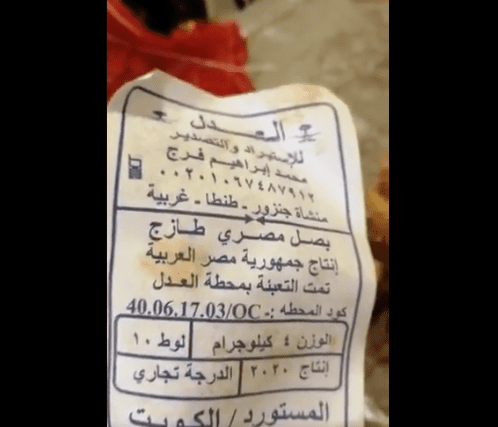 العدل
للإستيراد والتصدير
محمد إبراهيم فرج
٠٠٢٠١٠٦٧٤٨٧٩١٢
منشاة جنزور - طنطا - غربية
بصل مصري طازج
إنتاج جمهورية مصر العربية
تمت التعبئة بمحطة العدل
كود المحطه :- 40.06.17.03/OC
الوزن ٤ كيلوجرام لوط ١٠
إنتاج ٢٠٢٠ الدرجة تجاري
المستورد / الكويت